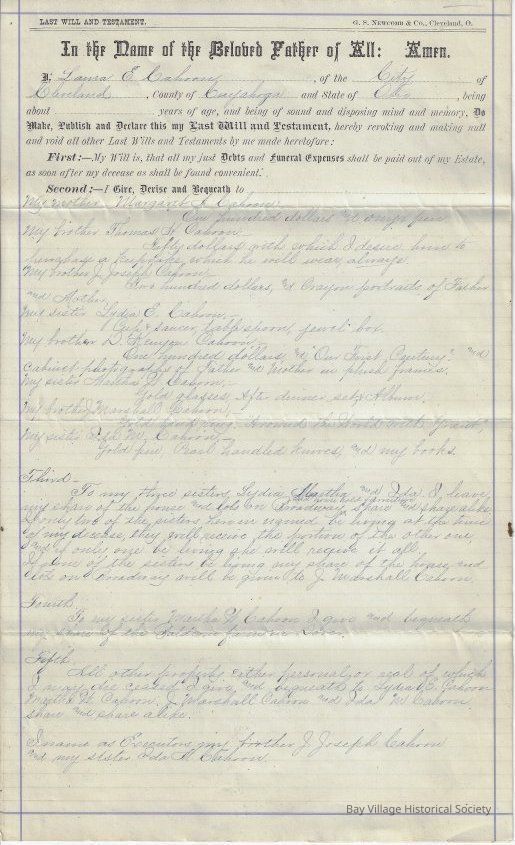 LAST WILL AND TESTAMENT.
G. S. NEWCOMB & CO., Cleveland, O.
In the Name of the Beloved Father of All: Amen.
I, Laura E. Cahoon, of the City of
Cleveland, County of Cuyahoga and State of Ohio, being
about years of age, and being of sound and disposing mind and memory, Do
Make, Publish and Declare this my Last Will and Testament, hereby revoking and making null
and void all other Last Wills and Testaments by me made heretofore:
First:—My Will is, that all my just Debts and Funeral Expenses shall be paid out of my Estate,
as soon after my decease as shall be found convenient.
Second:—I Give, Devise and Bequeath to
My mother Margaret Cahoon
One hundred dollars and onyx pin
My brother Thomas H. Cahoon
Fifty dollars with which I desire him to
purchase a keepsake, which he will wear always.
My brother J. Joseph Cahoon,
Two hundred dollars, and Crayon portraits of Father
and Mother.
My sister Lydia E. Cahoon,
Cup & saucer, table spoon, jewel box.
My brother D. Kenyon Cahoon,
One hundred dollars, and "Our First Century," and
cabinet photographs of Father and Mother in plush frames.
My sister Martha W. Cahoon,
Gold glasses, After dinner set, Album.
My brother J. Marshall Cahoon,
Gold ring, "Around the World with Grant,"
My sister Ida M. Cahoon,
Gold pin, Pearl handled knives, and my books.
Third
To my three sisters, Lydia, Martha and Ida I leave
my share of the house and lots on Broadway, share and share alike
only two of the sisters herein named be living at the time
of my decease, they will receive the portion of the other one,
and if only one be living she will receive it all.
If one of the sisters be living my share of the house and
lots on Broadway will be given to J. Marshall Cahoon.
Fourth
To my sister Martha W. Cahoon I give and bequeath
my share of the farm in Dover.
Fifth
All other property either personal or real of which
I may die seized I give and bequeath to Lydia E. Cahoon
Martha W. Cahoon, J. Marshall Cahoon and Ida M. Cahoon,
share and share alike.
I name as Executors my brother J. Joseph Cahoon
and my sister Ida M. Cahoon.
Bay Village Historical Society